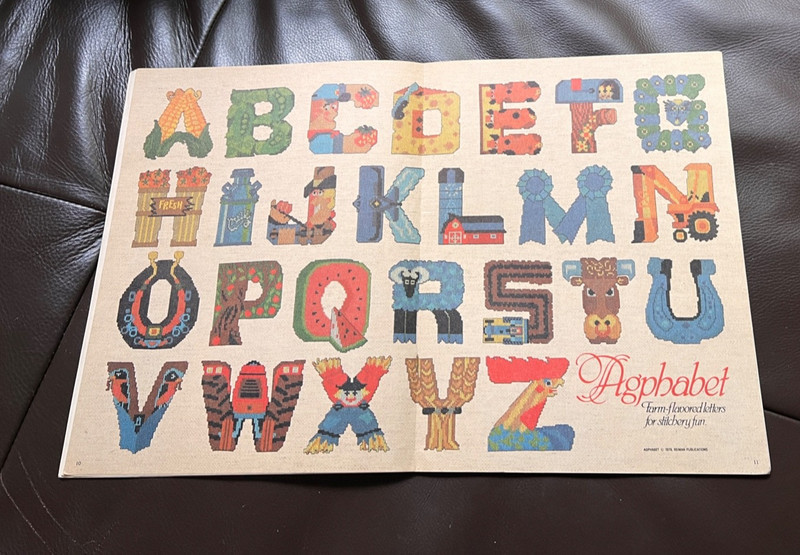 A B C D E F G
H I J K L M N
FRESH
O P Q R S T U
V W X Y Z
Agphabet
Farm-flavored letters
for stitchery fun.
AGPHABET © 1979, REIMAN PUBLICATIONS
10
11